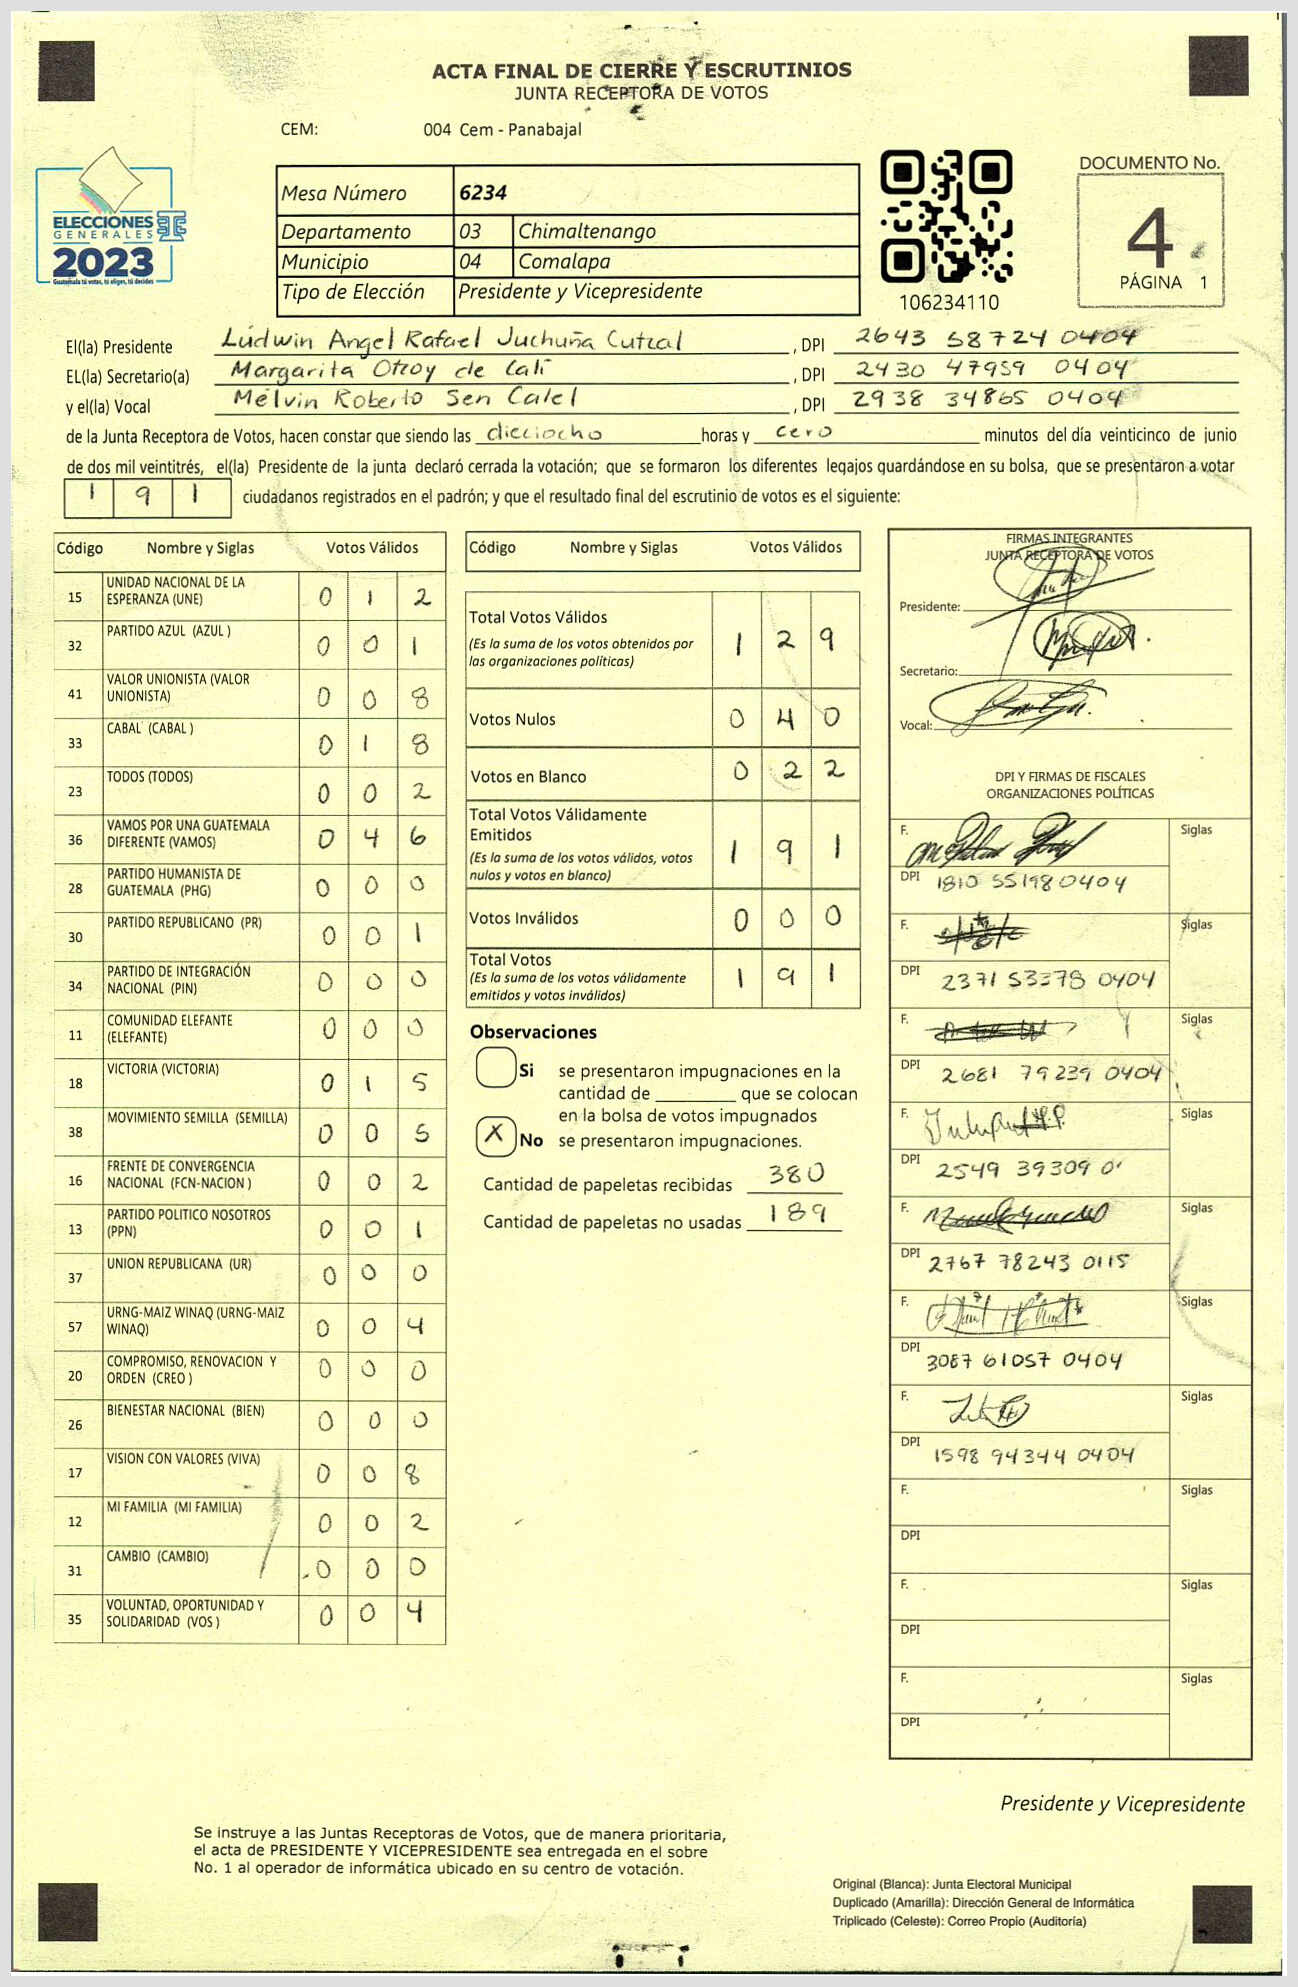 ACTA FINAL DE CIERRE Y ESCRUTINIOS
JUNTA RECEPTORA DE VOTOS
CEM: 004 Cem - Panabajal
ELECCIONES
GENERALES
2023
Guatemala tú votas, tú eliges, tú decides
Mesa Número 6234
Departamento 03 Chimaltenango
Municipio 04 Comalapa
Tipo de Elección Presidente y Vicepresidente
106234110
DOCUMENTO No.
4
PÁGINA 1
El(la) Presidente Lúdwin Angel Rafael Juchuña Cutzal , DPI 2643 58724 0404
EL(la) Secretario(a) Margarita Otzoy de Calí , DPI 2430 47959 0404
y el(la) Vocal Melvin Roberto Sen Calel , DPI 2938 34865 0404
de la Junta Receptora de Votos, hacen constar que siendo las dieciocho horas y cero minutos del día veinticinco de junio
de dos mil veintitrés, el(la) Presidente de la junta declaró cerrada la votación; que se formaron los diferentes legajos quardándose en su bolsa, que se presentaron a votar
1 9 1 ciudadanos registrados en el padrón; y que el resultado final del escrutinio de votos es el siguiente:
Código Nombre y Siglas Votos Válidos
15 UNIDAD NACIONAL DE LA ESPERANZA (UNE) 0 1 2
32 PARTIDO AZUL (AZUL ) 0 0 1
41 VALOR UNIONISTA (VALOR UNIONISTA) 0 0 8
33 CABAL (CABAL ) 0 1 8
23 TODOS (TODOS) 0 0 2
36 VAMOS POR UNA GUATEMALA DIFERENTE (VAMOS) 0 4 6
28 PARTIDO HUMANISTA DE GUATEMALA (PHG) 0 0 0
30 PARTIDO REPUBLICANO (PR) 0 0 1
34 PARTIDO DE INTEGRACIÓN NACIONAL (PIN) 0 0 0
11 COMUNIDAD ELEFANTE (ELEFANTE) 0 0 0
18 VICTORIA (VICTORIA) 0 1 5
38 MOVIMIENTO SEMILLA (SEMILLA) 0 0 5
16 FRENTE DE CONVERGENCIA NACIONAL (FCN-NACION ) 0 0 2
13 PARTIDO POLITICO NOSOTROS (PPN) 0 0 1
37 UNION REPUBLICANA (UR) 0 0 0
57 URNG-MAIZ WINAQ (URNG-MAIZ WINAQ) 0 0 4
20 COMPROMISO, RENOVACION Y ORDEN (CREO ) 0 0 0
26 BIENESTAR NACIONAL (BIEN) 0 0 0
17 VISION CON VALORES (VIVA) 0 0 8
12 MI FAMILIA (MI FAMILIA) 0 0 2
31 CAMBIO (CAMBIO) 0 0 0
35 VOLUNTAD, OPORTUNIDAD Y SOLIDARIDAD (VOS ) 0 0 4
Código Nombre y Siglas Votos Válidos
Total Votos Válidos 1 2 9
(Es la suma de los votos obtenidos por
las organizaciones políticas)
Votos Nulos 0 4 0
Votos en Blanco 0 2 2
Total Votos Válidamente
Emitidos 1 9 1
(Es la suma de los votos válidos, votos
nulos y votos en blanco)
Votos Inválidos 0 0 0
Total Votos 1 9 1
(Es la suma de los votos válidamente
emitidos y votos inválidos)
Observaciones
Si se presentaron impugnaciones en la
cantidad de ________ que se colocan
en la bolsa de votos impugnados
X No se presentaron impugnaciones.
Cantidad de papeletas recibidas 380
Cantidad de papeletas no usadas 189
FIRMAS INTEGRANTES
JUNTA RECEPTORA DE VOTOS
Presidente:
Secretario:
Vocal:
DPI Y FIRMAS DE FISCALES
ORGANIZACIONES POLÍTICAS
F. Siglas
DPI 1810 55198 0404
F. Siglas
DPI 2371 53378 0404
F. Siglas
DPI 2681 79239 0404
F. Siglas
DPI 2549 39309 0
F. Siglas
DPI 2767 78243 0115
F. Siglas
DPI 3087 61057 0404
F. Siglas
DPI 1598 94344 0404
F. Siglas
DPI
F. Siglas
DPI
F. Siglas
DPI
Presidente y Vicepresidente
Se instruye a las Juntas Receptoras de Votos, que de manera prioritaria,
el acta de PRESIDENTE Y VICEPRESIDENTE sea entregada en el sobre
No. 1 al operador de informática ubicado en su centro de votación.
Original (Blanca): Junta Electoral Municipal
Duplicado (Amarilla): Dirección General de Informática
Triplicado (Celeste): Correo Propio (Auditoría)